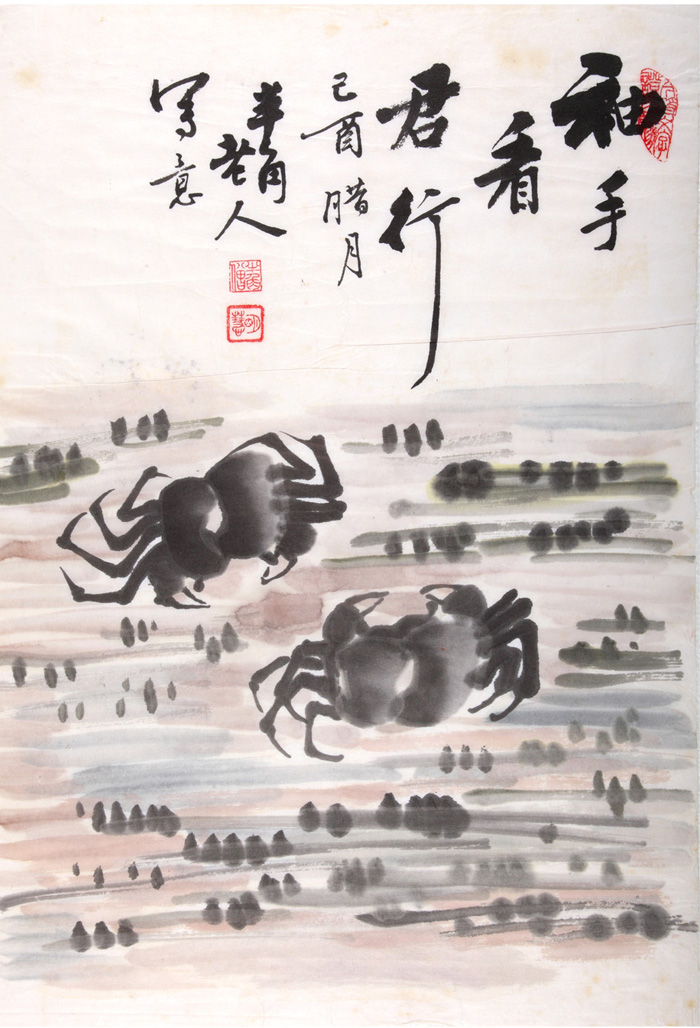 袖手
看
君行
己酉腊月
半角老人
寫意